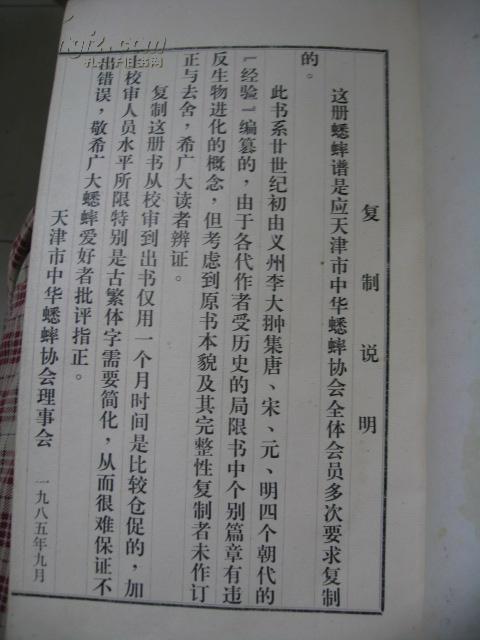 复制说明
这册蟋蟀谱是应天津市中华蟋蟀协会全体会员多次要求复制
的。
此书系廿世纪初由义州李大翀集唐、宋、元、明四个朝代的
﹁经验﹂编篡的，由于各代作者受历史的局限书中个别篇章有违
反生物进化的概念，但考虑到原书本貌及其完整性复制者未作订
正与去舍，希广大读者辨证。
复制这册书从校审到出书仅用一个月时间是比较仓促的，加
校审人员水平所限特别是古繁体字需要简化，从而很难保证不
出错误，敬希广大蟋蟀爱好者批评指正。
天津市中华蟋蟀协会理事会
一九八五年九月